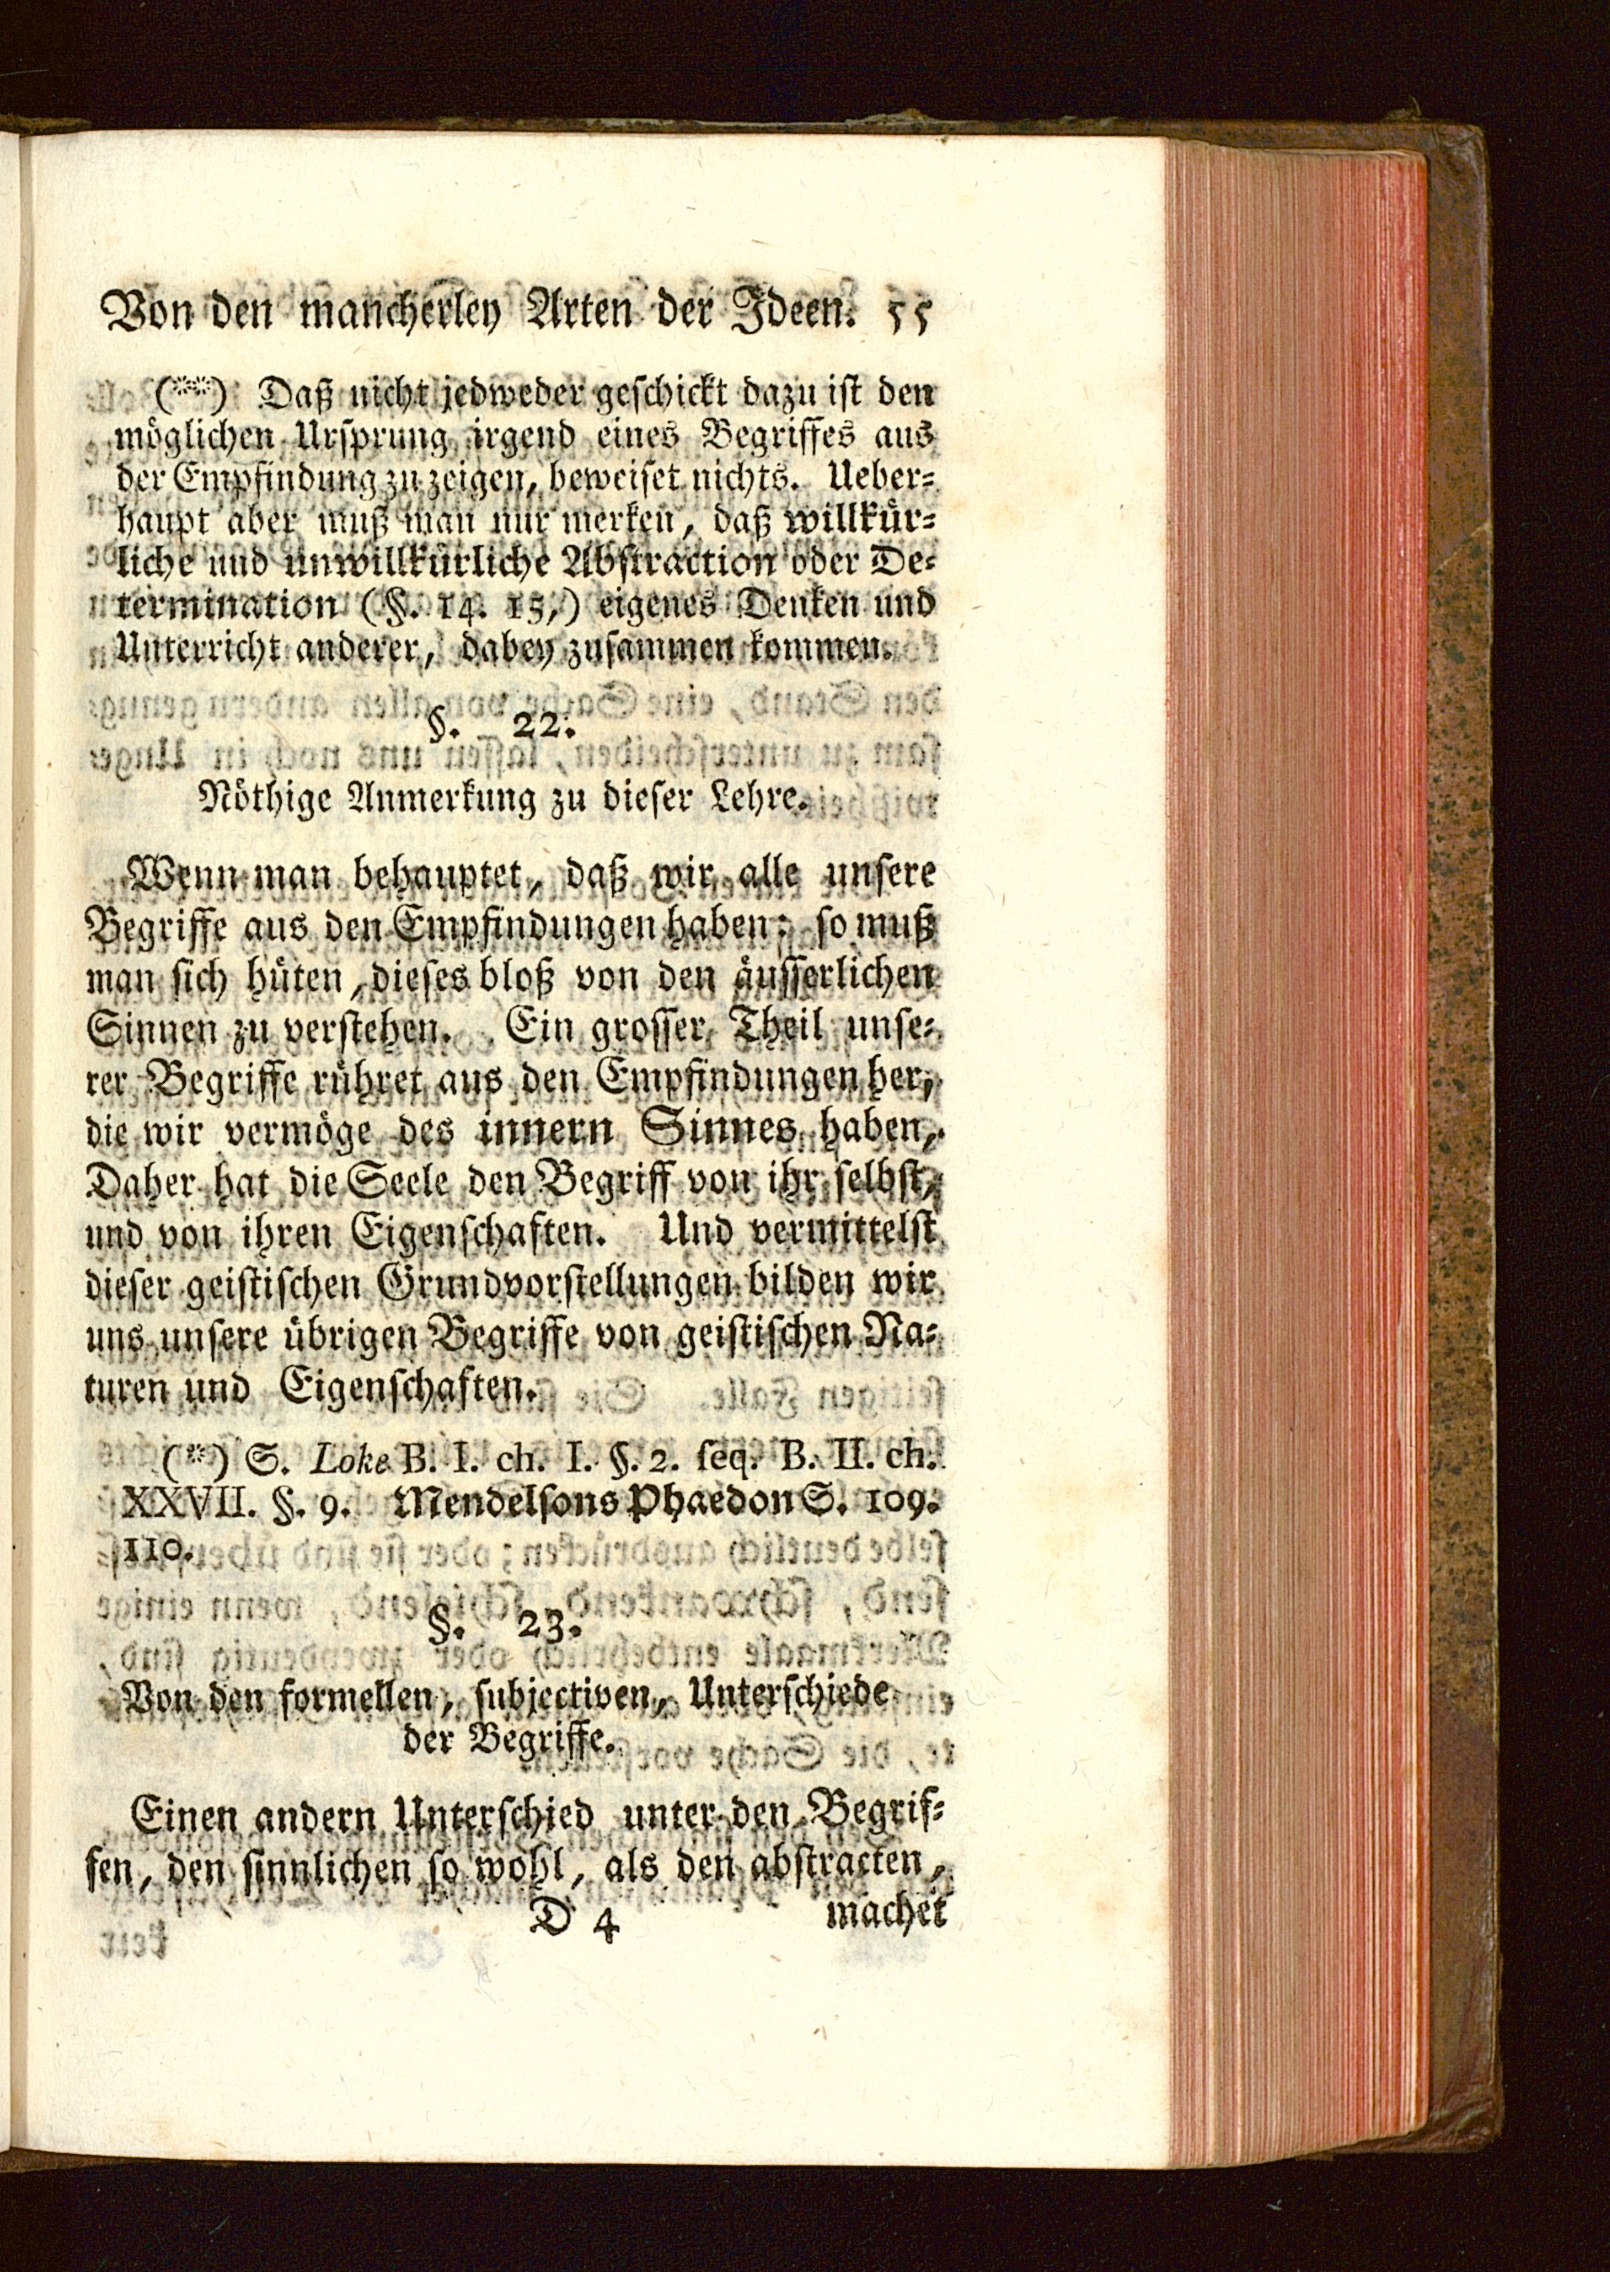 Von den mancherley Arten der Ideen. 55
(**) Daß nicht jedweder geschickt dazu ist den
möglichen Ursprung irgend eines Begriffes aus
der Empfindung zu zeigen, beweiset nichts. Ueber-
haupt aber muß man nur merken, daß willkür-
liche und unwillkürliche Abstraction oder De-
termination (§. 14. 15,) eigenes Denken und
Unterricht anderer, dabey zusammen kommen.
§. 22.
Nöthige Anmerkung zu dieser Lehre.
Wenn man behauptet, daß wir alle unsere
Begriffe aus den Empfindungen haben; so muß
man sich hüten, dieses bloß von den äusserlichen
Sinnen zu verstehen. Ein grosser Theil unse-
rer Begriffe rühret aus den Empfindungen her,
die wir vermöge des innern Sinnes haben,
Daher hat die Seele den Begriff von ihr selbst,
und von ihren Eigenschaften. Und vermittelst
dieser geistischen Grundvorstellungen bilden wir
uns unsere übrigen Begriffe von geistischen Na-
turen und Eigenschaften.
(*) S. Loke B. I. ch. I. §. 2. seq. B. II. ch.
XXVII. §. 9. Mendelsons Phaedon S. 109.
110.
§. 23.
Von den formellen, subjectiven, Unterschiede
der Begriffe.
Einen andern Unterschied unter den Begrif-
fen, den sinnlichen so wohl, als den abstracten,
D 4 machet